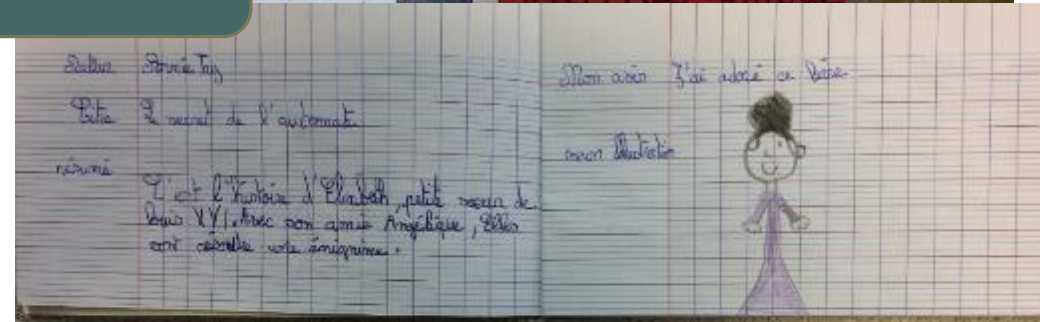 Auteur Annie Jay
Titre Le secret de l'automate
résumé
C'est l'histoire d'Elisabeth, petite soeur de
Louis XVI. Avec son amie Angélique, Elles
ont une
Mon avis J'ai adoré ce livre
mon illustration